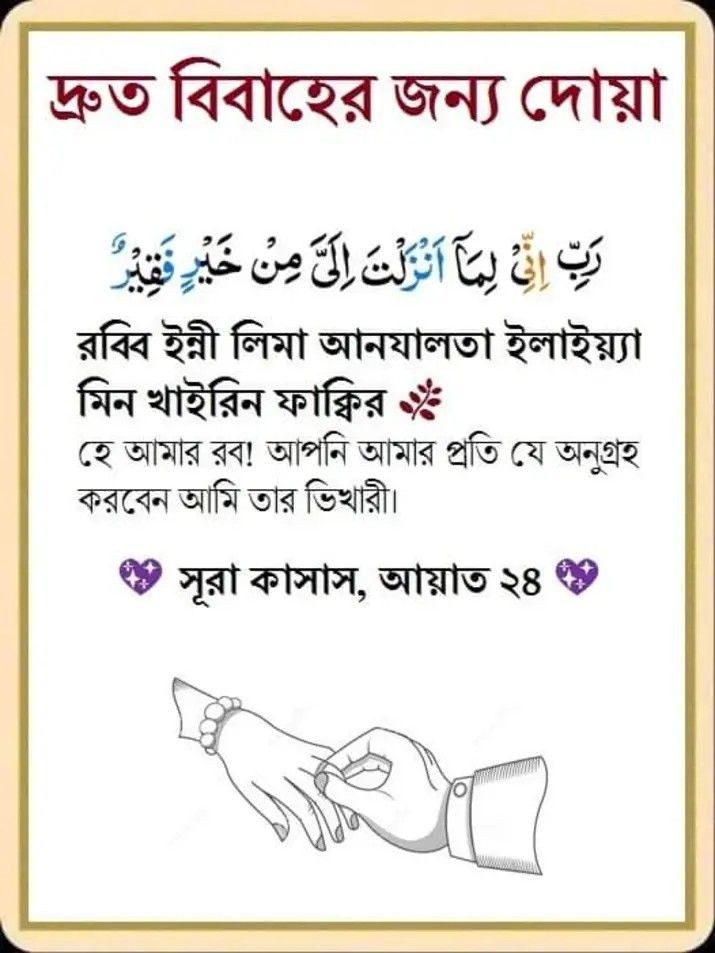 দ্রুত বিবাহের জন্য দোয়া
رَبِّ اِنِّيْ لِمَاۤ اَنْزَلْتَ اِلَيَّ مِنْ خَيْرٍ فَقِيْرٌ
রব্বি ইন্নী লিমা আনযালতা ইলাইয়্যা
মিন খাইরিন ফাক্বির
হে আমার রব! আপনি আমার প্রতি যে অনুগ্রহ
করবেন আমি তার ভিখারী।
সূরা কাসাস, আয়াত ২৪